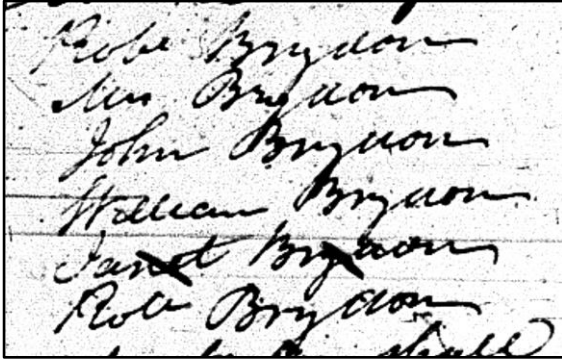 Robt Brydon
Mrs Brydon
John Brydon
William Brydon
Janet Brydon
Robt Brydon